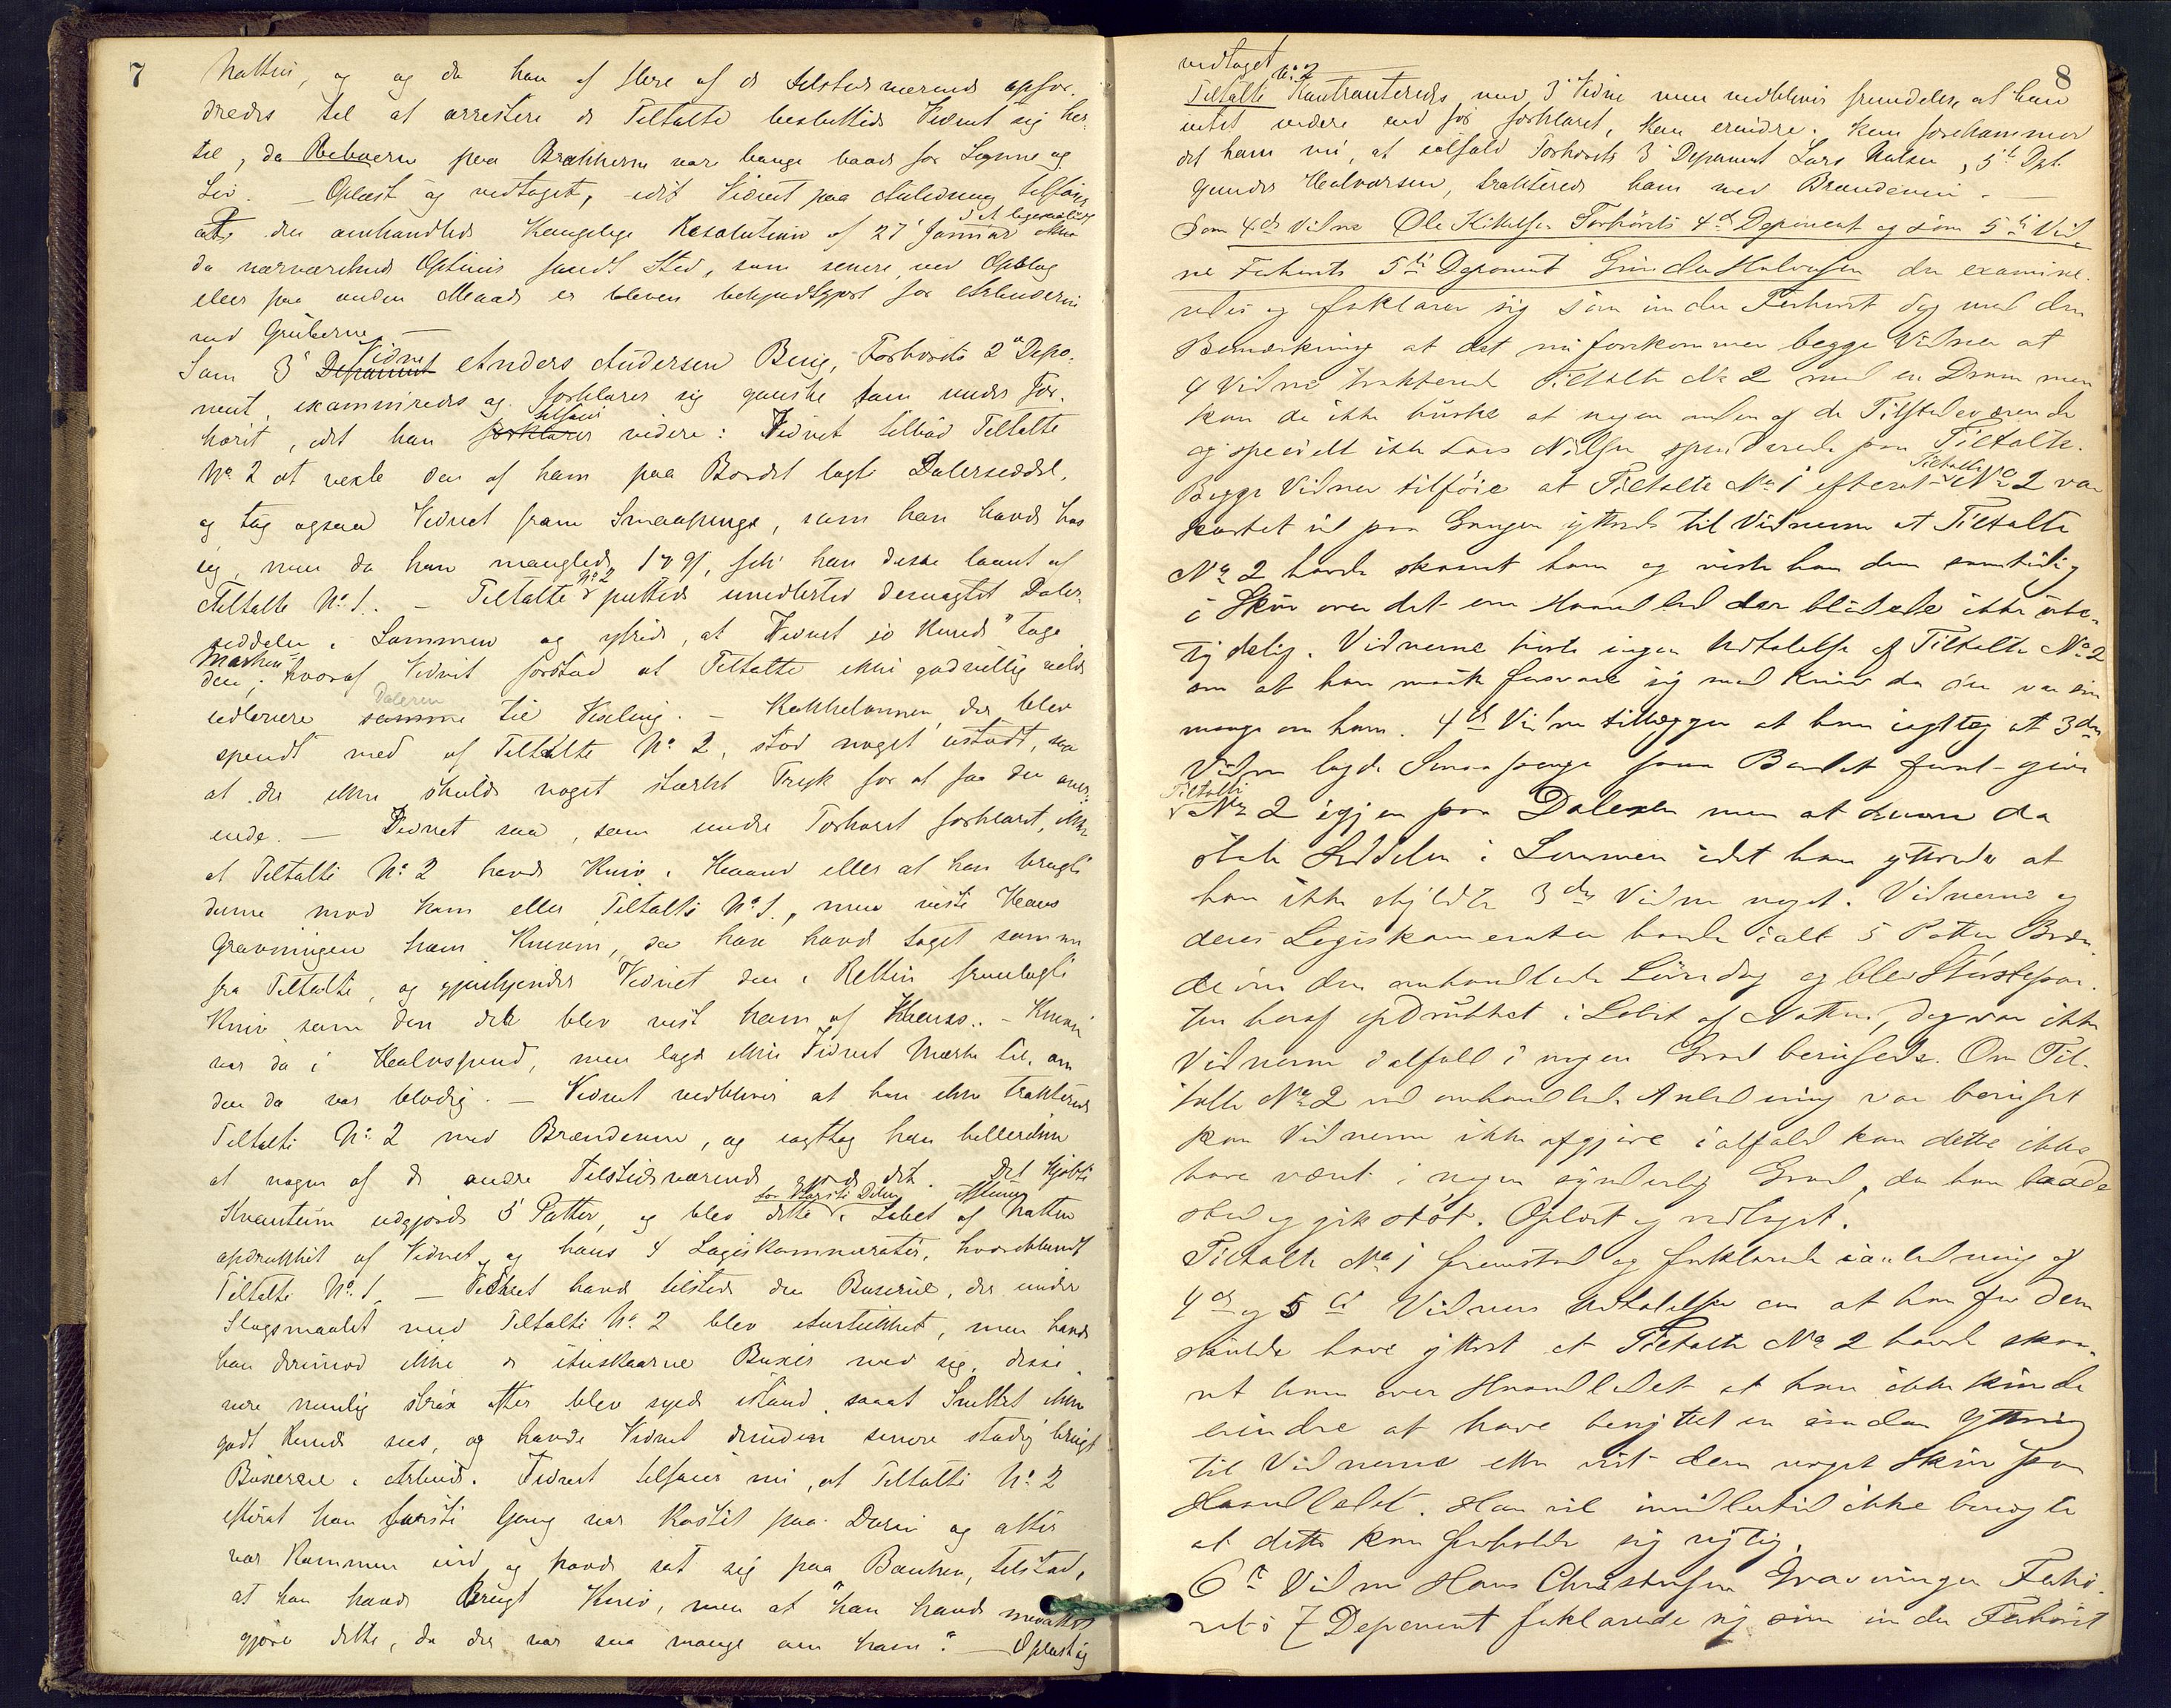 7
Natten, og og da han af flere af de tilstedeværende opfor-
dredes til at arrestere de Tiltalte besluttede Vidnet sig her-
til, da Beboerne paa Brakkerne vare bange baade for Lemme og
Liv. — Oplæst og vedtaget, idet Vidnet paa Anledning tilføier
at den omhandlede Kongelige Resolution af 27 Januar d. A. ligesaalidt
da nærværende Optrin fandt Sted, som senere ved Opslag
eller paa anden Maade er bleven bekjendtgjort for Arbeiderne
ved Gruberne. —
Som 3' Vidne Anders Andersen Berg, Forhørets 2' Depo-
nent, examineredes og forklarer sig ganske som under For-
høret, idet han tilføier videre: Vidnet tilbød Tiltalte
No 2 at vexle den af ham paa Bordet lagte Dalerseddel,
og tog ogsaa Vidnet frem Smaapenge, som han havde hos
sig, men da han manglede 17 sk, fik han disse laant af
Tiltalte No 1. — Tiltalte No 2 puttede imidlertid desuagtet Daler-
seddelen i Lommen og ytrede, at Vidnet jo kunde "tage
Marken den", hvoraf Vidnet forstod at Tiltalte ikke godvillig vilde
udlevere Daleren til Vexling. — Kakkelovnen, der blev
spendt ned af Tiltalte No 2, stod noget ustødt, saa
at der ikke skulde noget stærkt Tryk for at faa den over-
ende. — Vidnet saa, som under Forhøret forklaret, ikke
at Tiltalte No 2 havde Kniv i Haand eller at han brugte
denne mod ham eller Tiltalte No 1, men viste Hans
Gravningen ham Kniven, da han havde taget samme
fra Tiltalte, og gjenkjender Vidnet den i Retten fremlagte
Kniv som den der blev vist ham af Hans. — Kniven
var da i Halvspænd, men lagde ikke Vidnet Mærke til, om
den da var blodig. — Vidnet vedbliver at han ikke trakterede
Tiltalte No 2 med Brændevin, og iagttog han hellerikke
at nogen af de andre Tilstedeværende gjorde det. Det kjøbte
Kvantum udgjorde 5 Potter, og blev dette for største Delen i Løbet af Natten
opdrukket af Vidnet og hans 4 Logiskammerater, hvoriblandt
Tiltalte No 1. — Vidnet havde tilstede den Buserul, der under
Slagsmaalet med Tiltalte No 2 blev iturukket, men havde
han derimod ikke de ituskaarne Buxer med sig, disse
vare nemlig strax efter blev syede istand, saaat Snittet ikke
godt kunde sees, og havde Vidnet desuden senere stadig brugt
Buxerne i Arbeide. Vidnet tilføier nu, at Tiltalte No 2
efterat han første Gang var kastet paa Døren og atter
var kommen ind og havde sat sig paa Bænken, tilstod,
at han havde brugt Kniv, men at "han havde maattet
gjøre dette, da der var saa mange om ham." — Oplæst og
8
vedtaget. —
Tiltalte No 2 Konfronteredes med 3' Vidne men vedbliver fremdeles, at han
intet videre end før forklaret, kan erindre. Kun forekommer
det ham nu, at ialfald Forhørets 3' Deponent Lars Nilsen, 5te Dpt.
Gunder Halvorsen, trakterede ham med Brændevin. —
Som 4de Vidne Ole Kittelsen Forhørets 4de Deponent og som 5te Vid-
ne Forhørets 5te Deponent Gunder Halvorsen der examine-
redes og forklarer sig som under Forhøret dog med den
Bemærkning at det nu forekommer begge Vidner at
4 Vidne trakterede Tiltalte No 2 med en Dram men
kan de ikke huske at nogen anden af de Tilstedeværende
og specielt ikke Lars Nilsen spenderede paa Tiltalte.
Begge Vidner tilføie at Tiltalte No 1 efterat Tiltalte No 2 var
kastet ud paa Gangen yttrede til Vidnerne at Tiltalte
No 2 havde skaaret ham og viste han dem samtidig
i Skin over det ene Haandled der blødede ikke ube-
tydelig. Vidnerne hørte ingen Udtalelse af Tiltalte No 2
om at han maatte forsvare sig med Kniv da der var saa
mange om ham. 4de Vidne tillægger at han iagttog at 3die
Vidne lagde Smaapenge frem Bordet for at give
Tiltalte No 2 igjen paa Daleren men at denne da
stak Seddelen i Lommen idet han yttrede at
han ikke skyldte 3die Vidne noget. Vidnerne og
deres Logiskamerater havde ialt 5 Potter Bræn-
devin den omhandlede Løverdag og blev Størstepar-
ten heraf opdrukket i Løbet af Natten, dog var ikke
Vidnerne ialfald i nogen Grad berusede. Om Til-
talte No 2 ved omhandlede Anledning var beruset
kan Vidnerne ikke afgjøre ialfald kan dette ikke
have været i nogen synderlig Grad, da han baade
stod og gik støt. Oplæst og vedtaget.
Tiltalte No 1 fremstod og forklarede i anledning af
4de og 5te Vidners Udtalelse om at han for dem
skulde have yttret at Tiltalte No 2 havde skaa-
ret ham over Haandledet at han ikke kunde
erindre at have benyttet en saadan Yttring
til Vidnerne eller vist dem noget Skin paa
Haandledet. Han vil imidlertid ikke benegte
at dette kan forholde sig rigtig.
6te Vidne Hans Christensen Gravningen Forhø-
rets 7 Deponent forklarede sig som under Forhøret